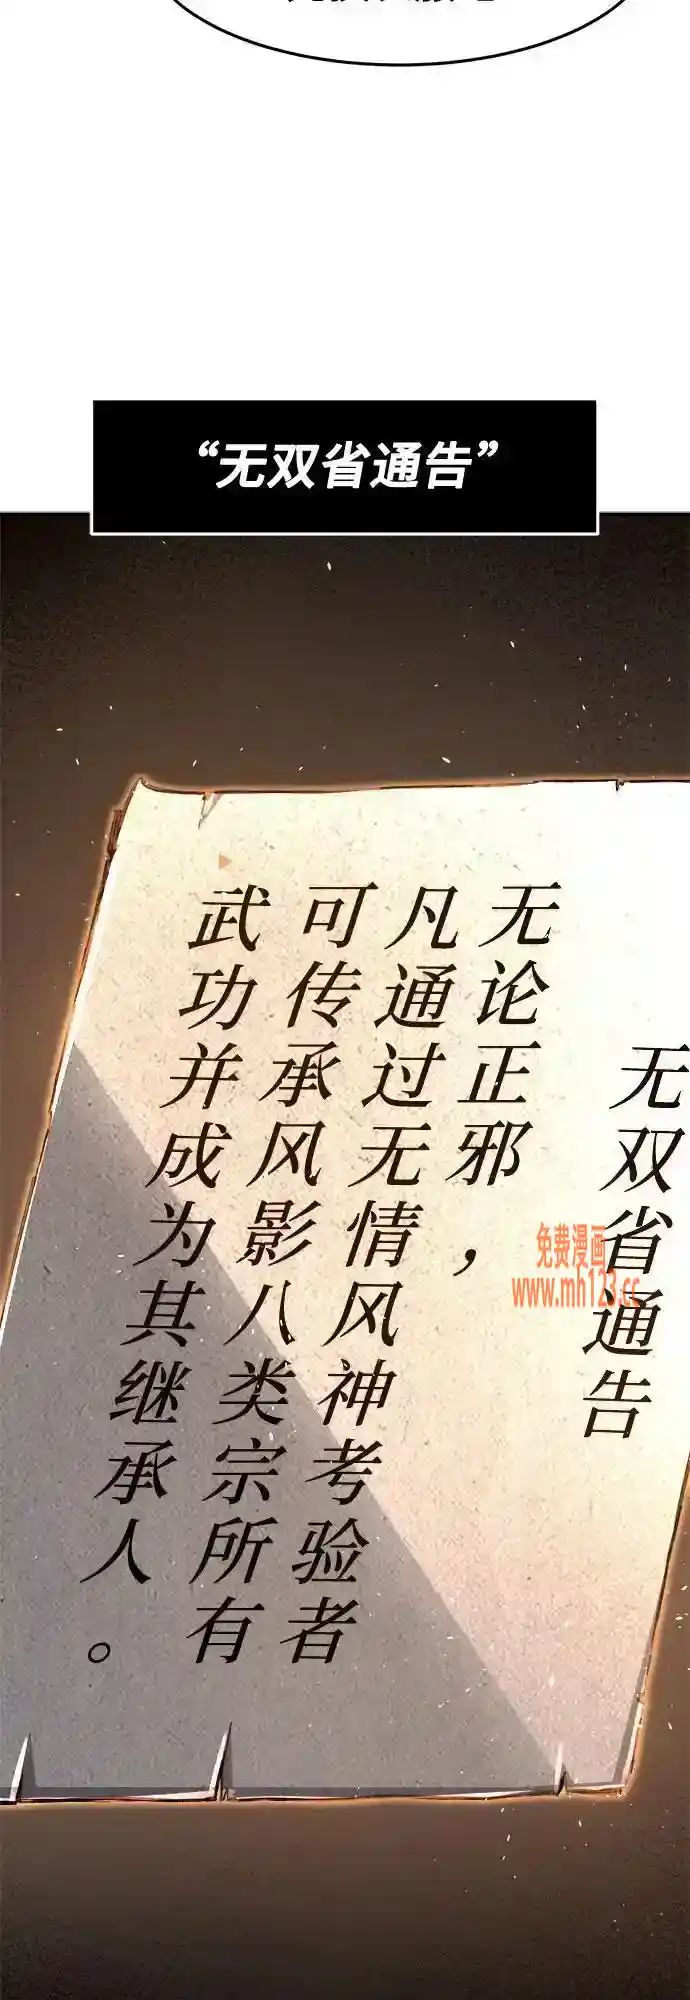 “无双省通告”
无双省通告
无论正邪，
凡通过无情风神考验者
可传承风影八类宗所有
武功并成为其继承人。
免费漫画
www.mh123.cc